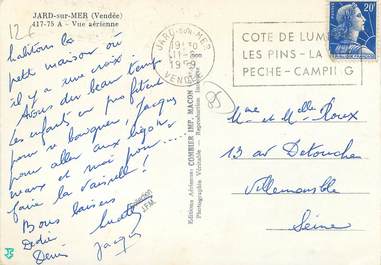 JARD-sur-MER (Vendée)
417-75 A - Vue aérienne
126
habitons la
petit maison où
il y a une croix.
Avons du beau temps
Les enfants en profitent
pour se baigner, Jacques
pour aller aux bigor
neaux et moi pour....
faire la vaisselle!
Bons baisers
Dédié
Denis Jacques
JARD-SUR-MER
VENDÉE
COTE DE LUM
LES PINS - LA
PECHE - CAMPING
20F
85
Editions Aériennes COMBIER IMP. MACON
Photographie Véritable - Reproduction Interdite
Mme et Melle Roux
13 av Detouche
Villemomble
Seine